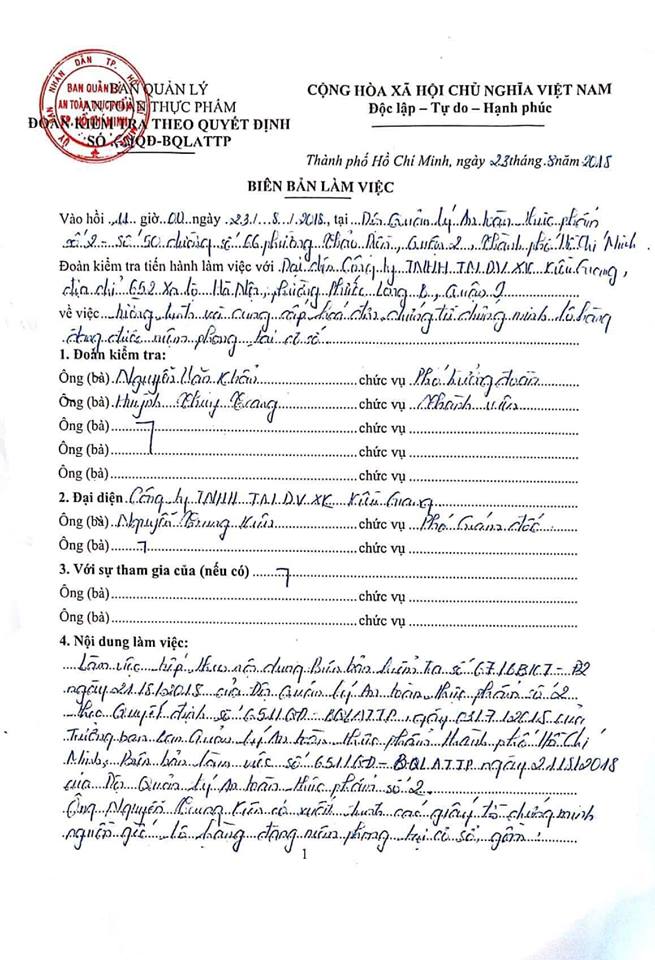 BAN QUẢN LÝ
AN TOÀN THỰC PHẨM
ĐOÀN KIỂM TRA THEO QUYẾT ĐỊNH
SỐ /QĐ-BQLATTP
CỘNG HÒA XÃ HỘI CHỦ NGHĨA VIỆT NAM
Độc lập – Tự do – Hạnh phúc
Thành phố Hồ Chí Minh, ngày 23 tháng 8 năm 2018
BIÊN BẢN LÀM VIỆC
Vào hồi 11 giờ 00 ngày 23/8/2018, tại Đội Quản lý An toàn thực phẩm
số 2 - số 50 đường số 66 phường Thảo Điền, Quận 2, Thành phố Hồ Chí Minh
Đoàn kiểm tra tiến hành làm việc với Đại diện Công ty TNHH TM DV XK Kiều Giang,
địa chỉ 652 Xa lộ Hà Nội, phường Phước Long B, Quận 9
về việc cung cấp hoá đơn, chứng từ chứng minh lô hàng
đang được niêm phong tại cơ sở
1. Đoàn kiểm tra:
Ông (bà) Nguyễn Văn Khẩn chức vụ Phó trưởng đoàn
Ông (bà) Huỳnh Thùy Trang chức vụ Thành viên
Ông (bà) chức vụ
Ông (bà) chức vụ
Ông (bà) chức vụ
2. Đại diện Công ty TNHH TM DV XK Kiều Giang
Ông (bà) Nguyễn Trung Kiên chức vụ Phó Giám đốc
Ông (bà) chức vụ
3. Với sự tham gia của (nếu có)
Ông (bà) chức vụ
Ông (bà) chức vụ
4. Nội dung làm việc:
Làm việc tiếp theo nội dung Biên bản kiểm tra số 671BKT-Đ2
ngày 21/8/2018 của Đội Quản lý An toàn thực phẩm số 2
theo Quyết định số 651/QĐ-BQLATTP ngày 03/7/2018 của
Trưởng ban Ban Quản lý An toàn thực phẩm Thành phố Hồ Chí
Minh, Biên bản làm việc số 651/QĐ-BQLATTP ngày 21/8/2018
của Đội Quản lý An toàn thực phẩm số 2.
Ông Nguyễn Trung Kiên có xuất trình các giấy tờ chứng minh
nguồn gốc lô hàng đang niêm phong tại cơ sở, gồm:
1